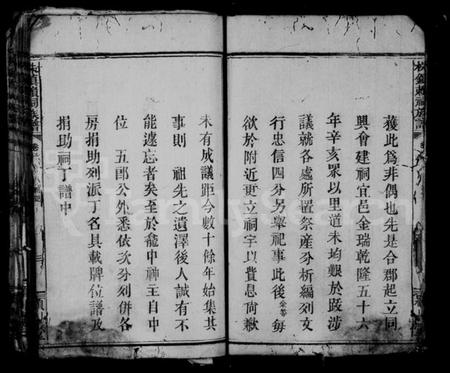 獲此爲非偶也先是合郡起立同
興會建祠宜邑金瑞乾隆五十六
年辛亥眾以里道未均艱於跋涉
議就各處所置祭產分析編列文
行忠信四分另舉祀事此後 每
欲於附近更立祠宇以貲息尚歉
未有成議距今數十餘年始集其
事則 祖先之遺澤後人誠有不
能遽忘者矣至於龕中神主自中
位 五郎公外悉依次分列併各
房捐助列派丁名具載牌位譜及
捐助祠丁譜中